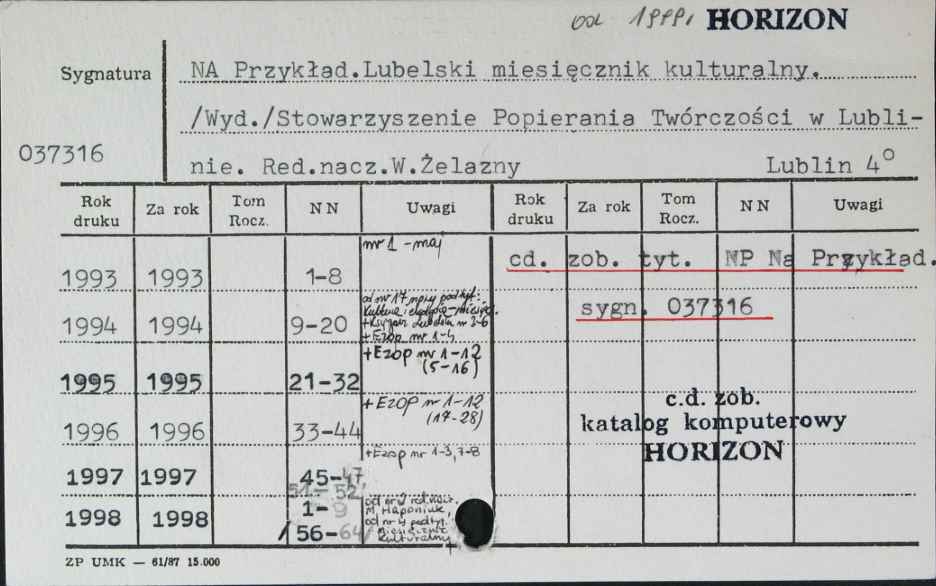 od 1999, HORIZON
Sygnatura
NA Przykład.Lubelski miesięcznik kulturalny.
/Wyd./Stowarzyszenie Popierania Twórczości w Lubli-
037316
nie. Red.nacz.W.Żelazny Lublin 4°
Rok druku Za rok Tom Rocz. NN Uwagi Rok druku Za rok Tom Rocz. NN Uwagi
nr 1 - maj
cd. zob. tyt. NP Na Przykład.
1993 1993 1-8
sygn. 037316
od nr 17 podtyt.:
1994 1994 9-20
+ Ezop nr 1-4
+ Ezop nr 1-12
(5-16)
1995 1995 21-32
+ EZOP nr 1-12
(17-28)
1996 1996 33-44
c.d. zob.
katalog komputerowy
HORIZON
+ Ezop nr 1-3, 7-8
1997 1997 45-47,
51-52
1998 1998 1-9
/56-64/
M. Haponiuk,
od nr 4 podtyt.:
Miesięcznik
Kulturalny
ZP UMK — 61/87 15.000